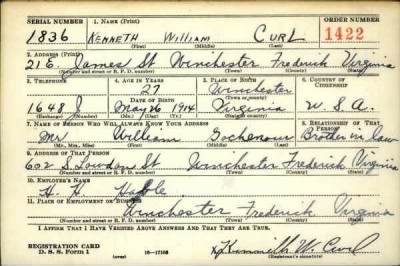 SERIAL NUMBER 1. NAME (Print) ORDER NUMBER
1836 KENNETH WILLIAM CURL 1422
(First) (Middle) (Last)
2. ADDRESS (Print)
21 E. James St Winchester Frederick Virginia
(Number and street or R. F. D. number) (Town) (County) (State)
3. TELEPHONE 4. AGE IN YEARS 5. PLACE OF BIRTH 6. COUNTRY OF CITIZENSHIP
27 Winchester
DATE OF BIRTH (Town or county)
1648 J May 26 1914 Virginia U.S.A.
(Exchange) (Number) (Mo.) (Day) (Yr.) (State or country)
7. NAME OF PERSON WHO WILL ALWAYS KNOW YOUR ADDRESS 8. RELATIONSHIP OF THAT PERSON
Mr William Gochenour Brother in law
(Mr., Mrs., Miss) (First) (Middle) (Last)
9. ADDRESS OF THAT PERSON
602 S. Loudon St Winchester Frederick Virginia
(Number and street or R. F. D. number) (Town) (County) (State)
10. EMPLOYER'S NAME
H. H.
11. PLACE OF EMPLOYMENT OR BUSINESS
Winchester Frederick Virginia
(Number and street or R. F. D. number) (Town) (County) (State)
I AFFIRM THAT I HAVE VERIFIED ABOVE ANSWERS AND THAT THEY ARE TRUE.
REGISTRATION CARD
D. S. S. Form 1 Kenneth W. Curl
(Registrant's signature)